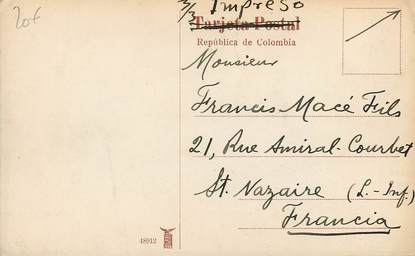 20€
3/3 Impreso
Tarjeta Postal
República de Colombia
Monsieur
Francis Macé Fils
21, Rue Amiral-Courbet
St. Nazaire (L.-Inf.)
Francia
48912